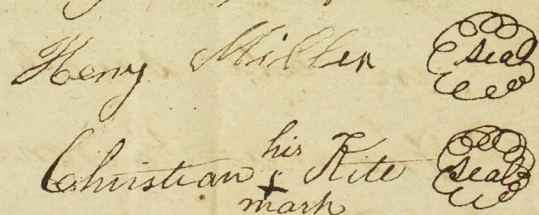 Henry Miller seal
Christian his x Kite seal
mark